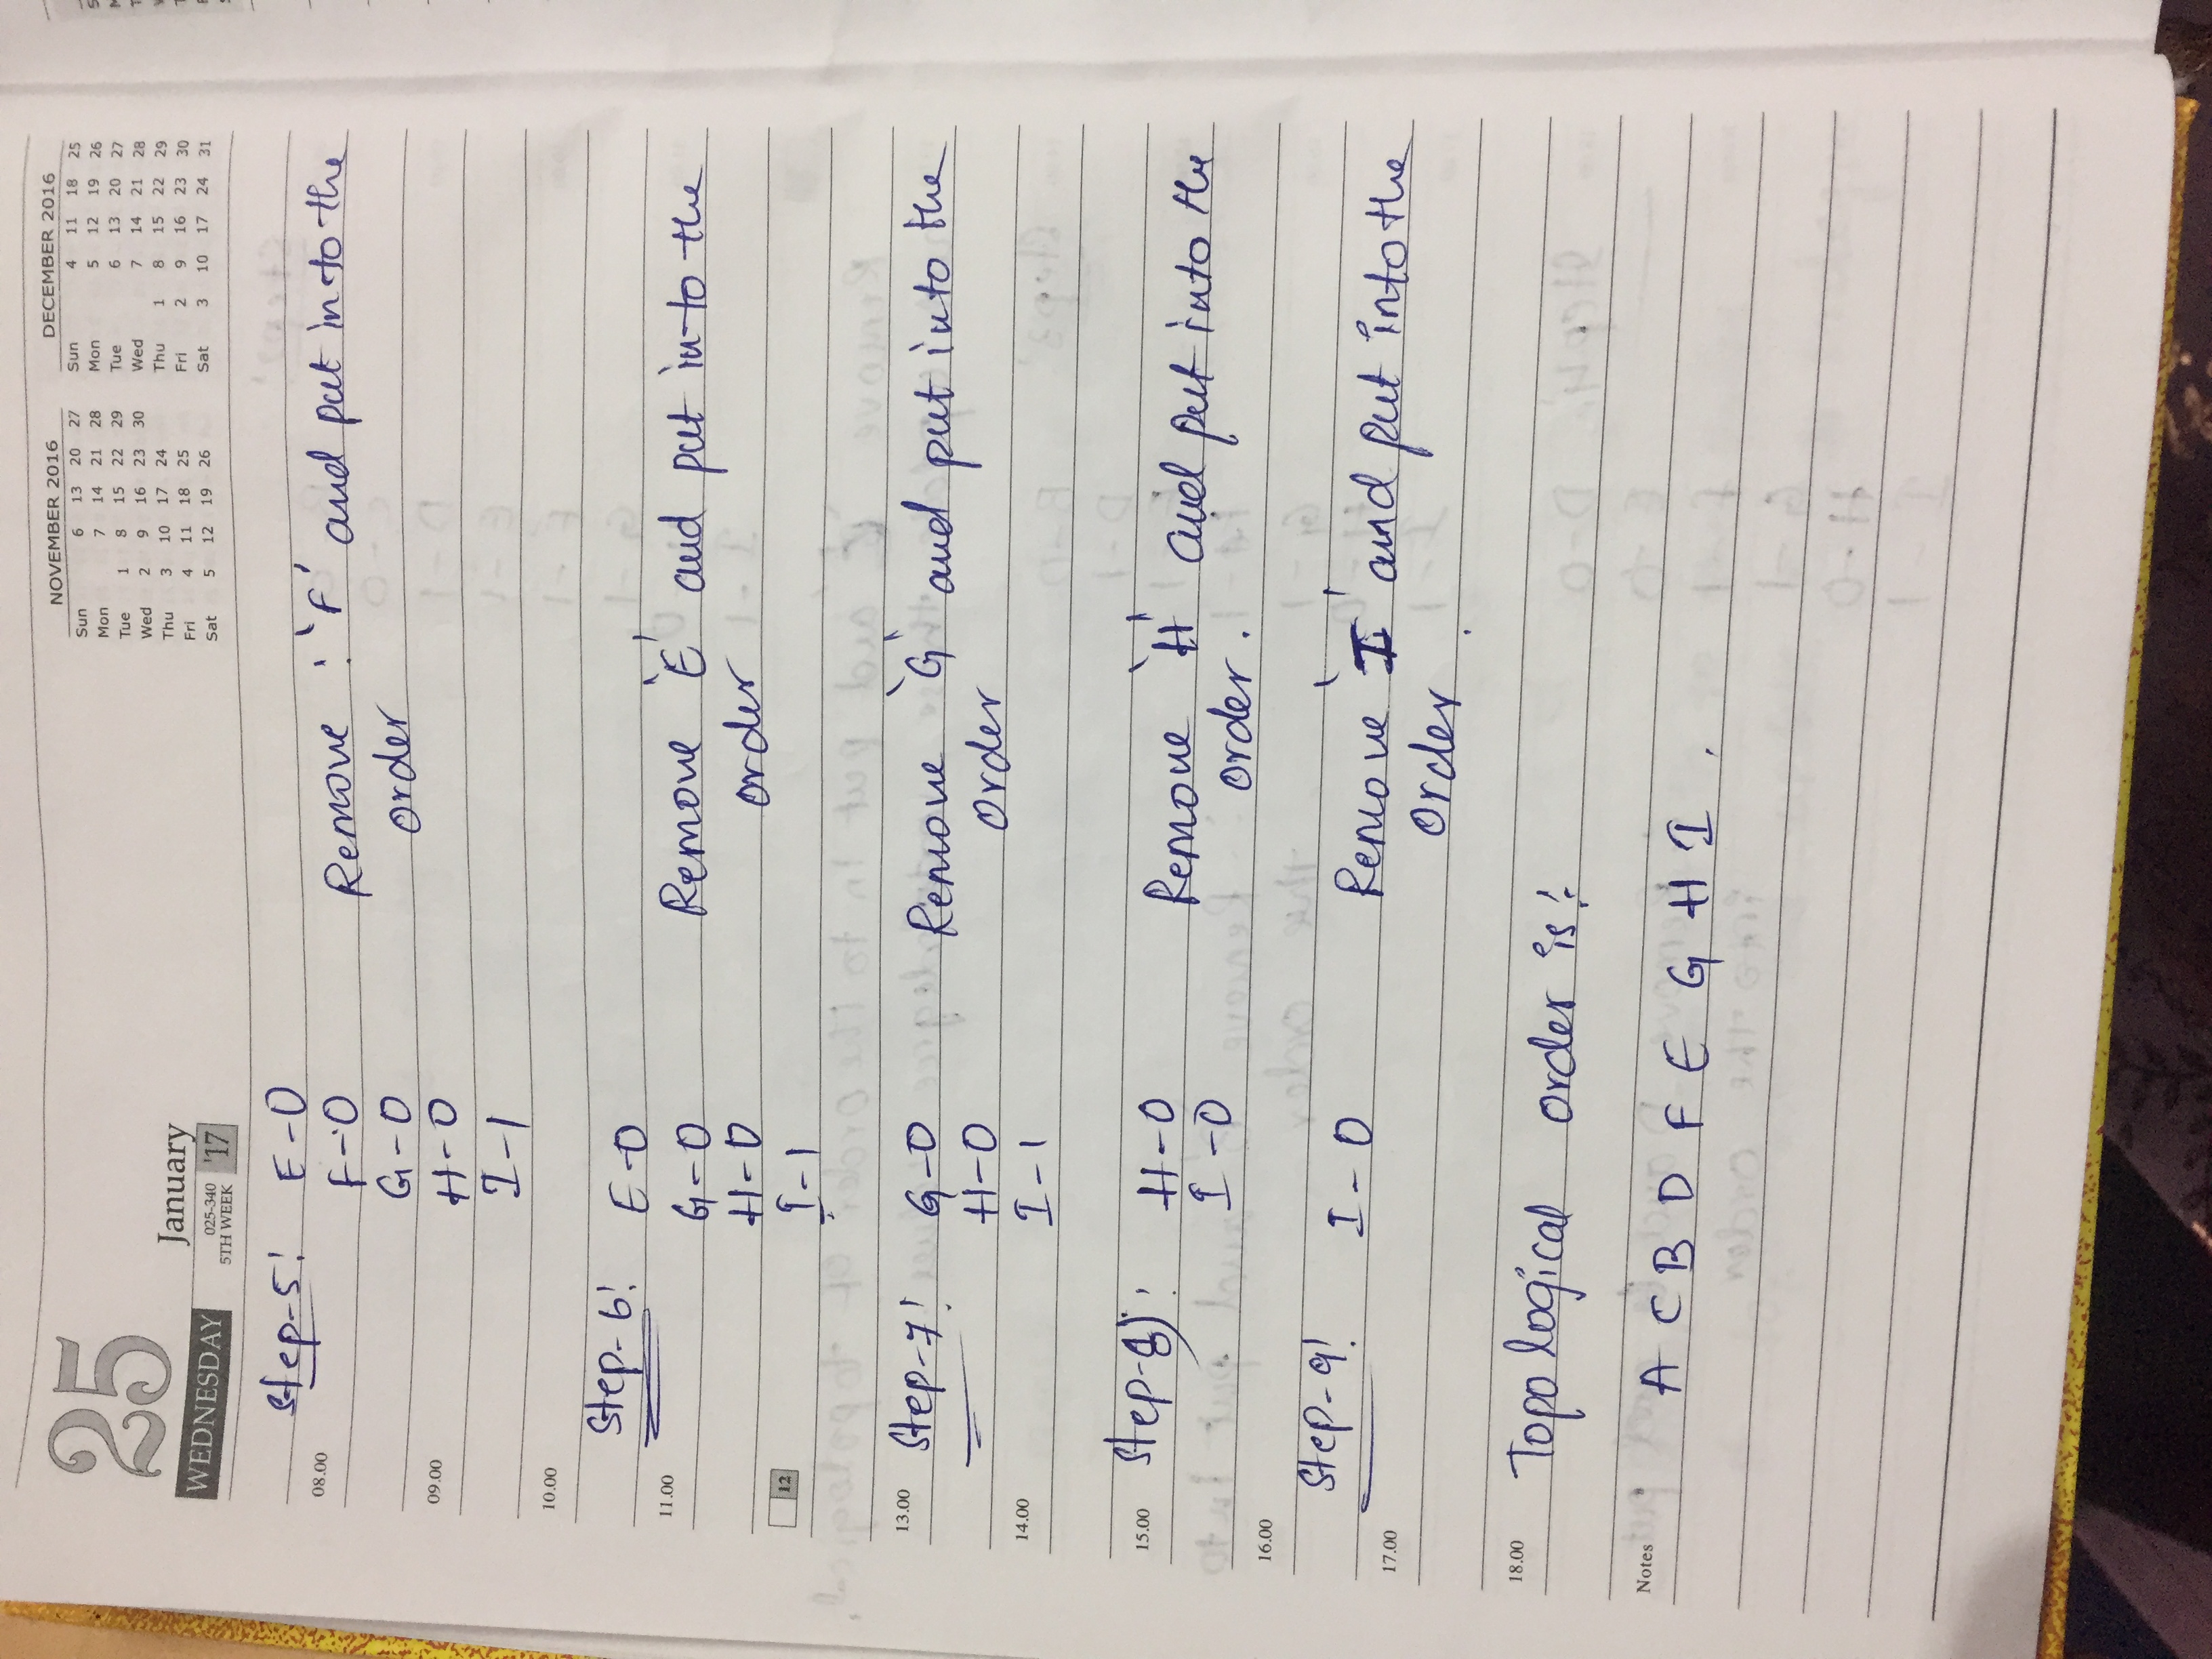 25
WEDNESDAY
January
025-340
5TH WEEK
'17
NOVEMBER 2016
Sun 6 13 20 27
Mon 7 14 21 28
Tue 1 8 15 22 29
Wed 2 9 16 23 30
Thu 3 10 17 24
Fri 4 11 18 25
Sat 5 12 19 26
DECEMBER 2016
Sun 4 11 18 25
Mon 5 12 19 26
Tue 6 13 20 27
Wed 7 14 21 28
Thu 1 8 15 22 29
Fri 2 9 16 23 30
Sat 3 10 17 24 31
Step-5! E-0
08.00 F-0 Remove : 'F' and put in to the
G-0 order
09.00 H-0
I-1
10.00
Step-6! E-0
11.00 G-0 Remove 'E' and put in to the
H-0 order
12 I-1
13.00 Step-7! G-0 Remove 'G' and put into the
H-0 order
14.00 I-1
15.00 Step-8): H-0 Remove 'H' and put into the
I-0 order.
16.00
Step-9! I-0 Remove 'I' and put into the
17.00 order.
18.00 Topological order is:
Notes A C B D F E G H I .